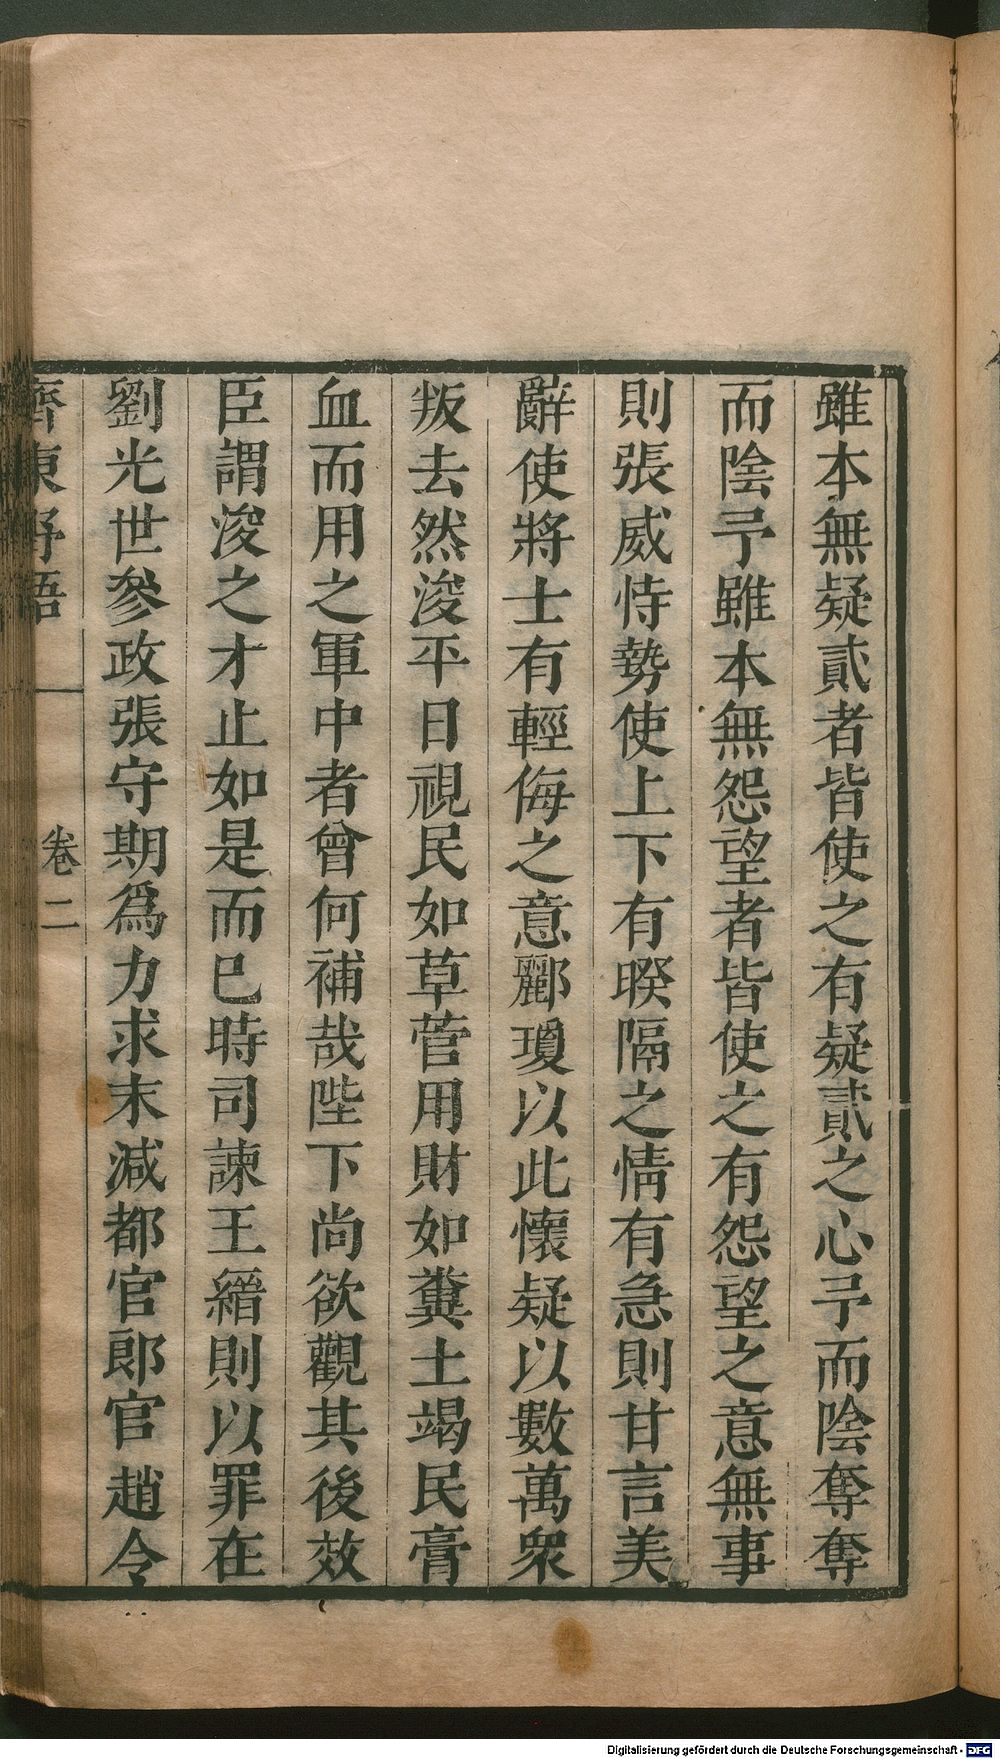 雖本無疑貳者皆使之有疑貳之心予而陰奪奪
而陰予雖本無怨望者皆使之有怨望之意無事
則張威恃勢使上下有暌隔之情有急則甘言美
辭使將士有輕侮之意酈瓊以此懷疑以數萬衆
叛去然浚平日視民如草菅用財如糞土竭民膏
血而用之軍中者曾何補哉陛下尚欲觀其後效
臣謂浚之才止如是而已時司諫王縉則以罪在
劉光世參政張守期爲力求末減都官郎官趙令
齊東野語
卷二
Digitalisierung gefördert durch die Deutsche Forschungsgemeinschaft - DFG